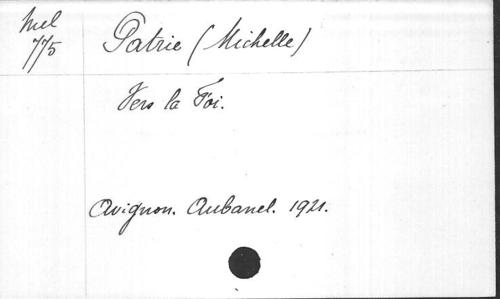 Mel
775
Patrie (Michelle)
Vers la Foi.
Avignon. Aubanel. 1921.